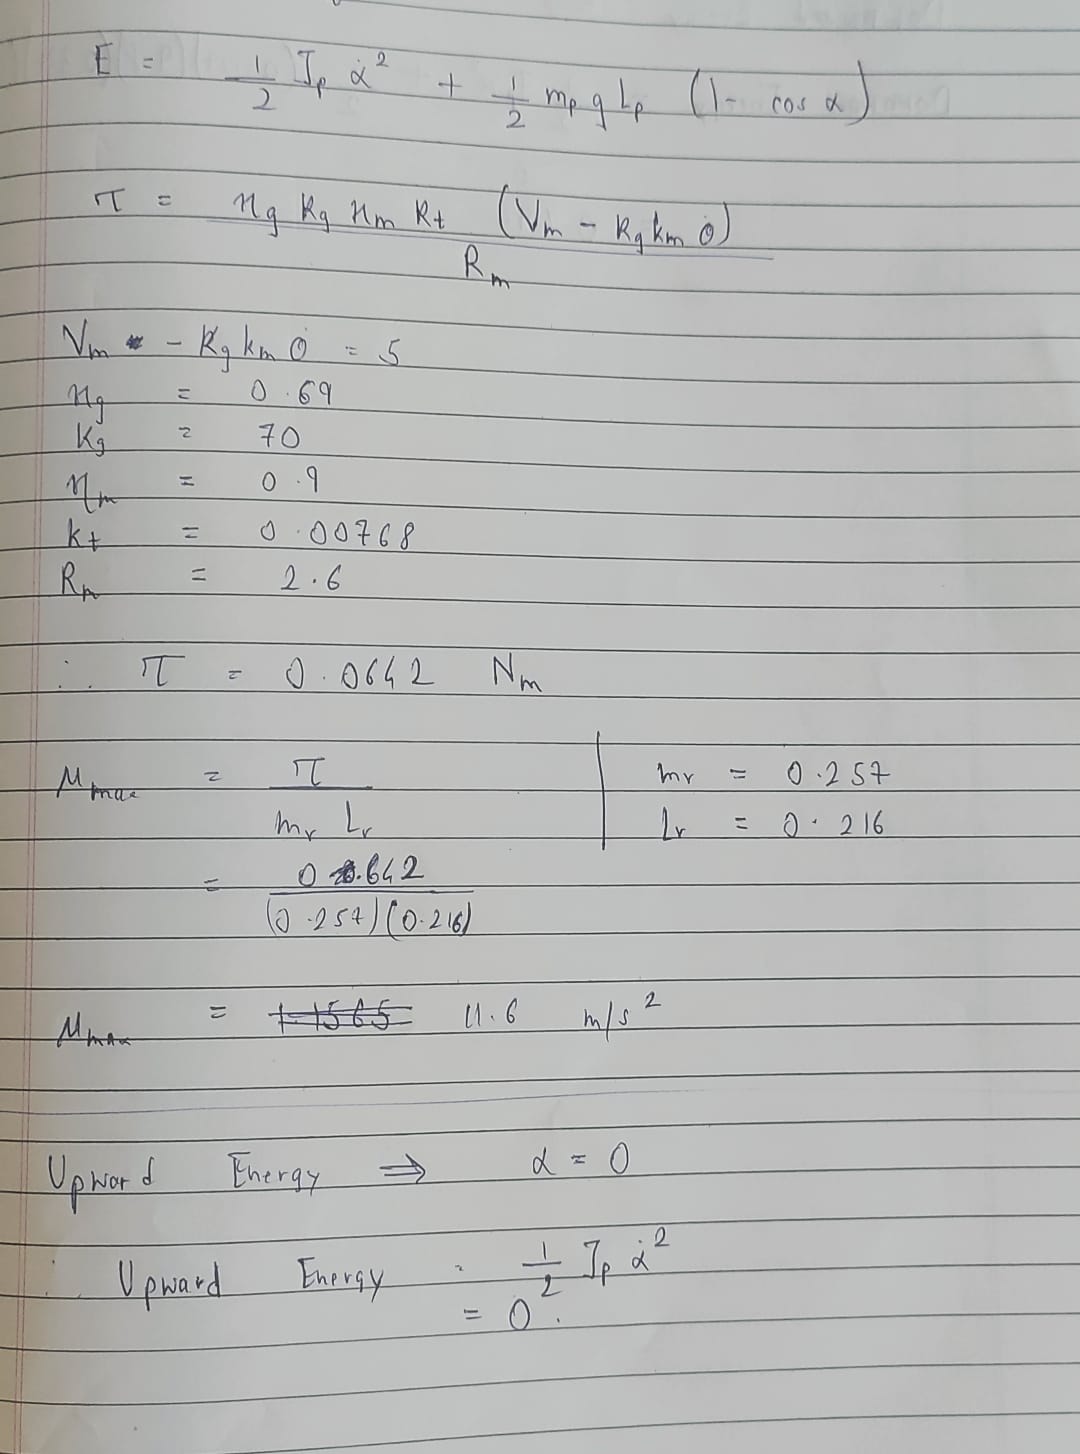 E = 1/2 Jp α̇² + 1/2 mp g Lp (1 - cos α)
τ = ηg Kg ηm Kt (Vm - Kg km θ̇) / Rm
Vm - Kg km θ̇ = 5
ηg = 0.69
Kg = 70
ηm = 0.9
kt = 0.00768
Rm = 2.6
∴ τ = 0.0642 Nm
μmax = τ / mr Lr
mr = 0.257
Lr = 0.216
= 0.642 / (0.257)(0.216)
μmax = 11.6 m/s²
Upward Energy ⇒ α = 0
∴ Upward Energy = 1/2 Jp α̇²
= 0.